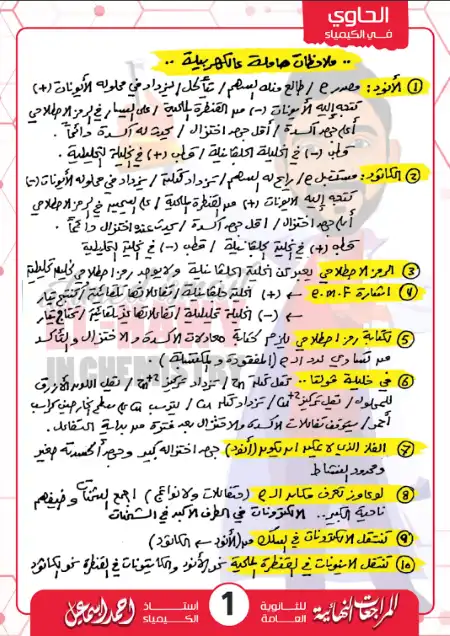 الحاوي
في الكيمياء
.. ملاحظات هامة عالكهربية ..
① الأنود: مصدر e / طالع منه لسهم / يتآكل ليزداد في محلوله الأيونات (+)
تتجه إليه الأنيونات (-) من القنطرة الملحية / على اليسار في الرمز الاصطلاحي
أعلى جهد أكسدة / أقل جهد اختزال / يحدث له أكسدة دائماً.
قطب (-) في الخلية الجلفانية / قطب (+) في الخلية التحليلية.
② الكاثود: مستقبل e / رايح له السهم / تزداد كتلته / تزداد في محلوله الأنيونات (-)
تتجه إليه الأيونات (+) من القنطرة الملحية / على اليمين في الرمز الاصطلاحي
أعلى جهد اختزال / أقل جهد أكسدة / يحدث عنده اختزال دائماً.
قطب (+) في خلية جلفانية / قطب (-) في الخلية التحليلية
③ الرمز الاصطلاحي يعبر عن الخلية الجلفانية ولا يوجد رمز اصطلاحي لخلية تحليلية
④ اشارة e.m.F ← (+) الخلية جلفانية / تفاعلات تلقائية / تنتج تيار
← (-) الخلية تحليلية / تفاعلات غير تلقائية / تحتاج تيار
⑤ لكتابة رمز اصطلاحي يلزم كتابة معادلات الأكسدة والاختزال والتأكد
من تساوي عدد الـ e (المفقودة والمكتسبة).
⑥ في خلية فولتا .. تقل كتلة Zn / تزداد تركيز Zn+2 / تقل اللون الأزرق
للمحلول / تقل تركيز Cu+2 / تزداد كتلة Cu / لترسب Cu على سطح
أحمر / يتوقف تفاعلات الأكسدة والاختزال بعد فترة من بداية التفاعل.
⑦ الفلز الذي لا يمكن أن يكون (أنود) جهد اختزاله كبير وجهد أكسدته صغير
ومحدود النشاط
⑧ لو عاوز تعرف مكان الـ e (متفاعلات ولا نواتج) اجمع الشحنات وضيفهم
ناحية الكبير.. الالكترونات في الطرف الأكبر في الشحنات
⑨ تنتقل الالكترونات في السلك من (الأنود ← الكاثود)
⑩ تنتقل الأنيونات في القنطرة الملحية نحو الأنود والكاتيونات في القنطرة نحو الكاثود
EL-HAWY
IN CHEMISTRY
المراجعات النهائية
للثانوية العامة
1
أستاذ الكيمياء
احمد اسماعيل